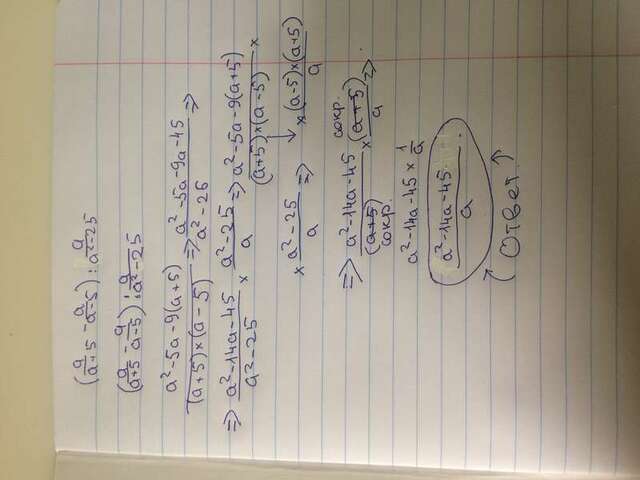 (a/a+5 - a/a-5) : a/a²-25
(a/a+5 - a/a-5) : a/a²-25
a²-5a-9(a+5)/(a+5)×(a-5) => a²-5a-9a-45/a²-25 =>
=> a²-14a-45/a²-25 × a²-25/a => a²-5a-9(a+5)/(a+5)×(a-5) ×
× a²-25/a => ×(a-5)×(a+5)/a
=> a²-14a-45/(a+5) сокр. × (a+5)/a сокр. =>
a²-14a-45 × 1/a
a²-14a-45/a
Ответ